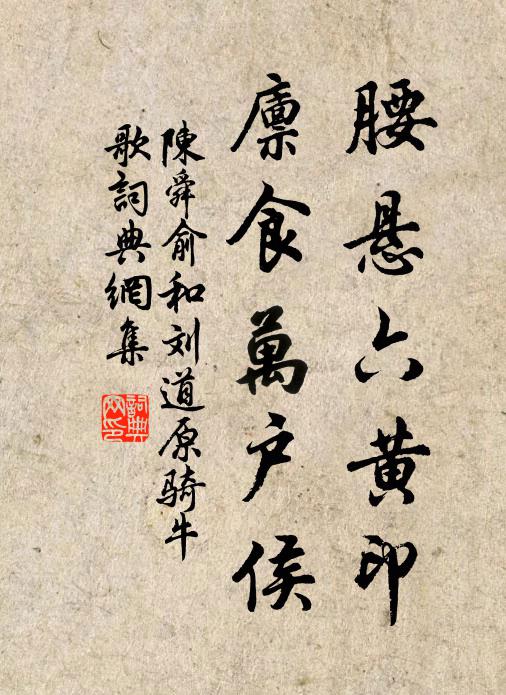 腰悬六黄印
廪食萬户侯
陳舜俞和刘道原骑牛
歌詞典網集
詞典網印